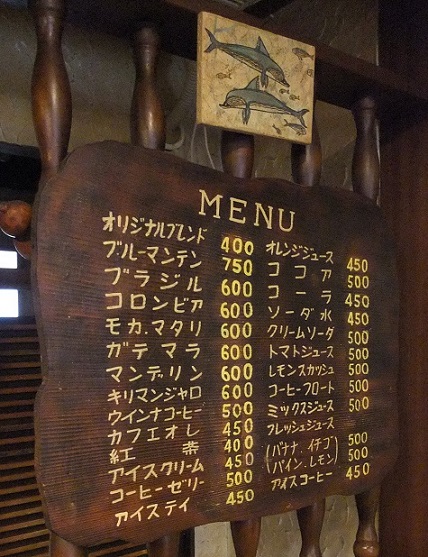 MENU
オリジナルブレンド 400
ブルーマンテン 750
ブラジル 600
コロンビア 600
モカ.マタリ 600
ガテマラ 600
マンデリン 600
キリマンジャロ 600
ウインナコーヒー 500
カフェオレ 450
紅茶 400
アイスクリーム 450
コーヒーゼリー 500
アイスティ 450
オレンジジュース 450
ココア 500
コーラ 450
ソーダ水 450
クリームソーダ 500
トマトジュース 500
レモンスカッシュ 500
コーヒーフロート 500
ミックスジュース 500
フレッシュジュース
(バナナ.イチゴ 500
パイン.レモン) 500
アイスコーヒー 450